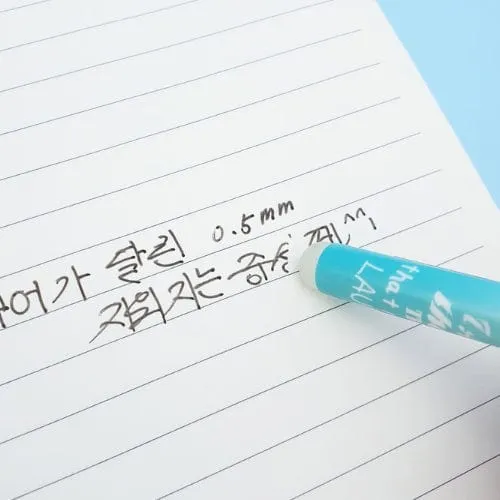 어가 살린 0.5mm
지워지는 중성 펜^^
that
LAU